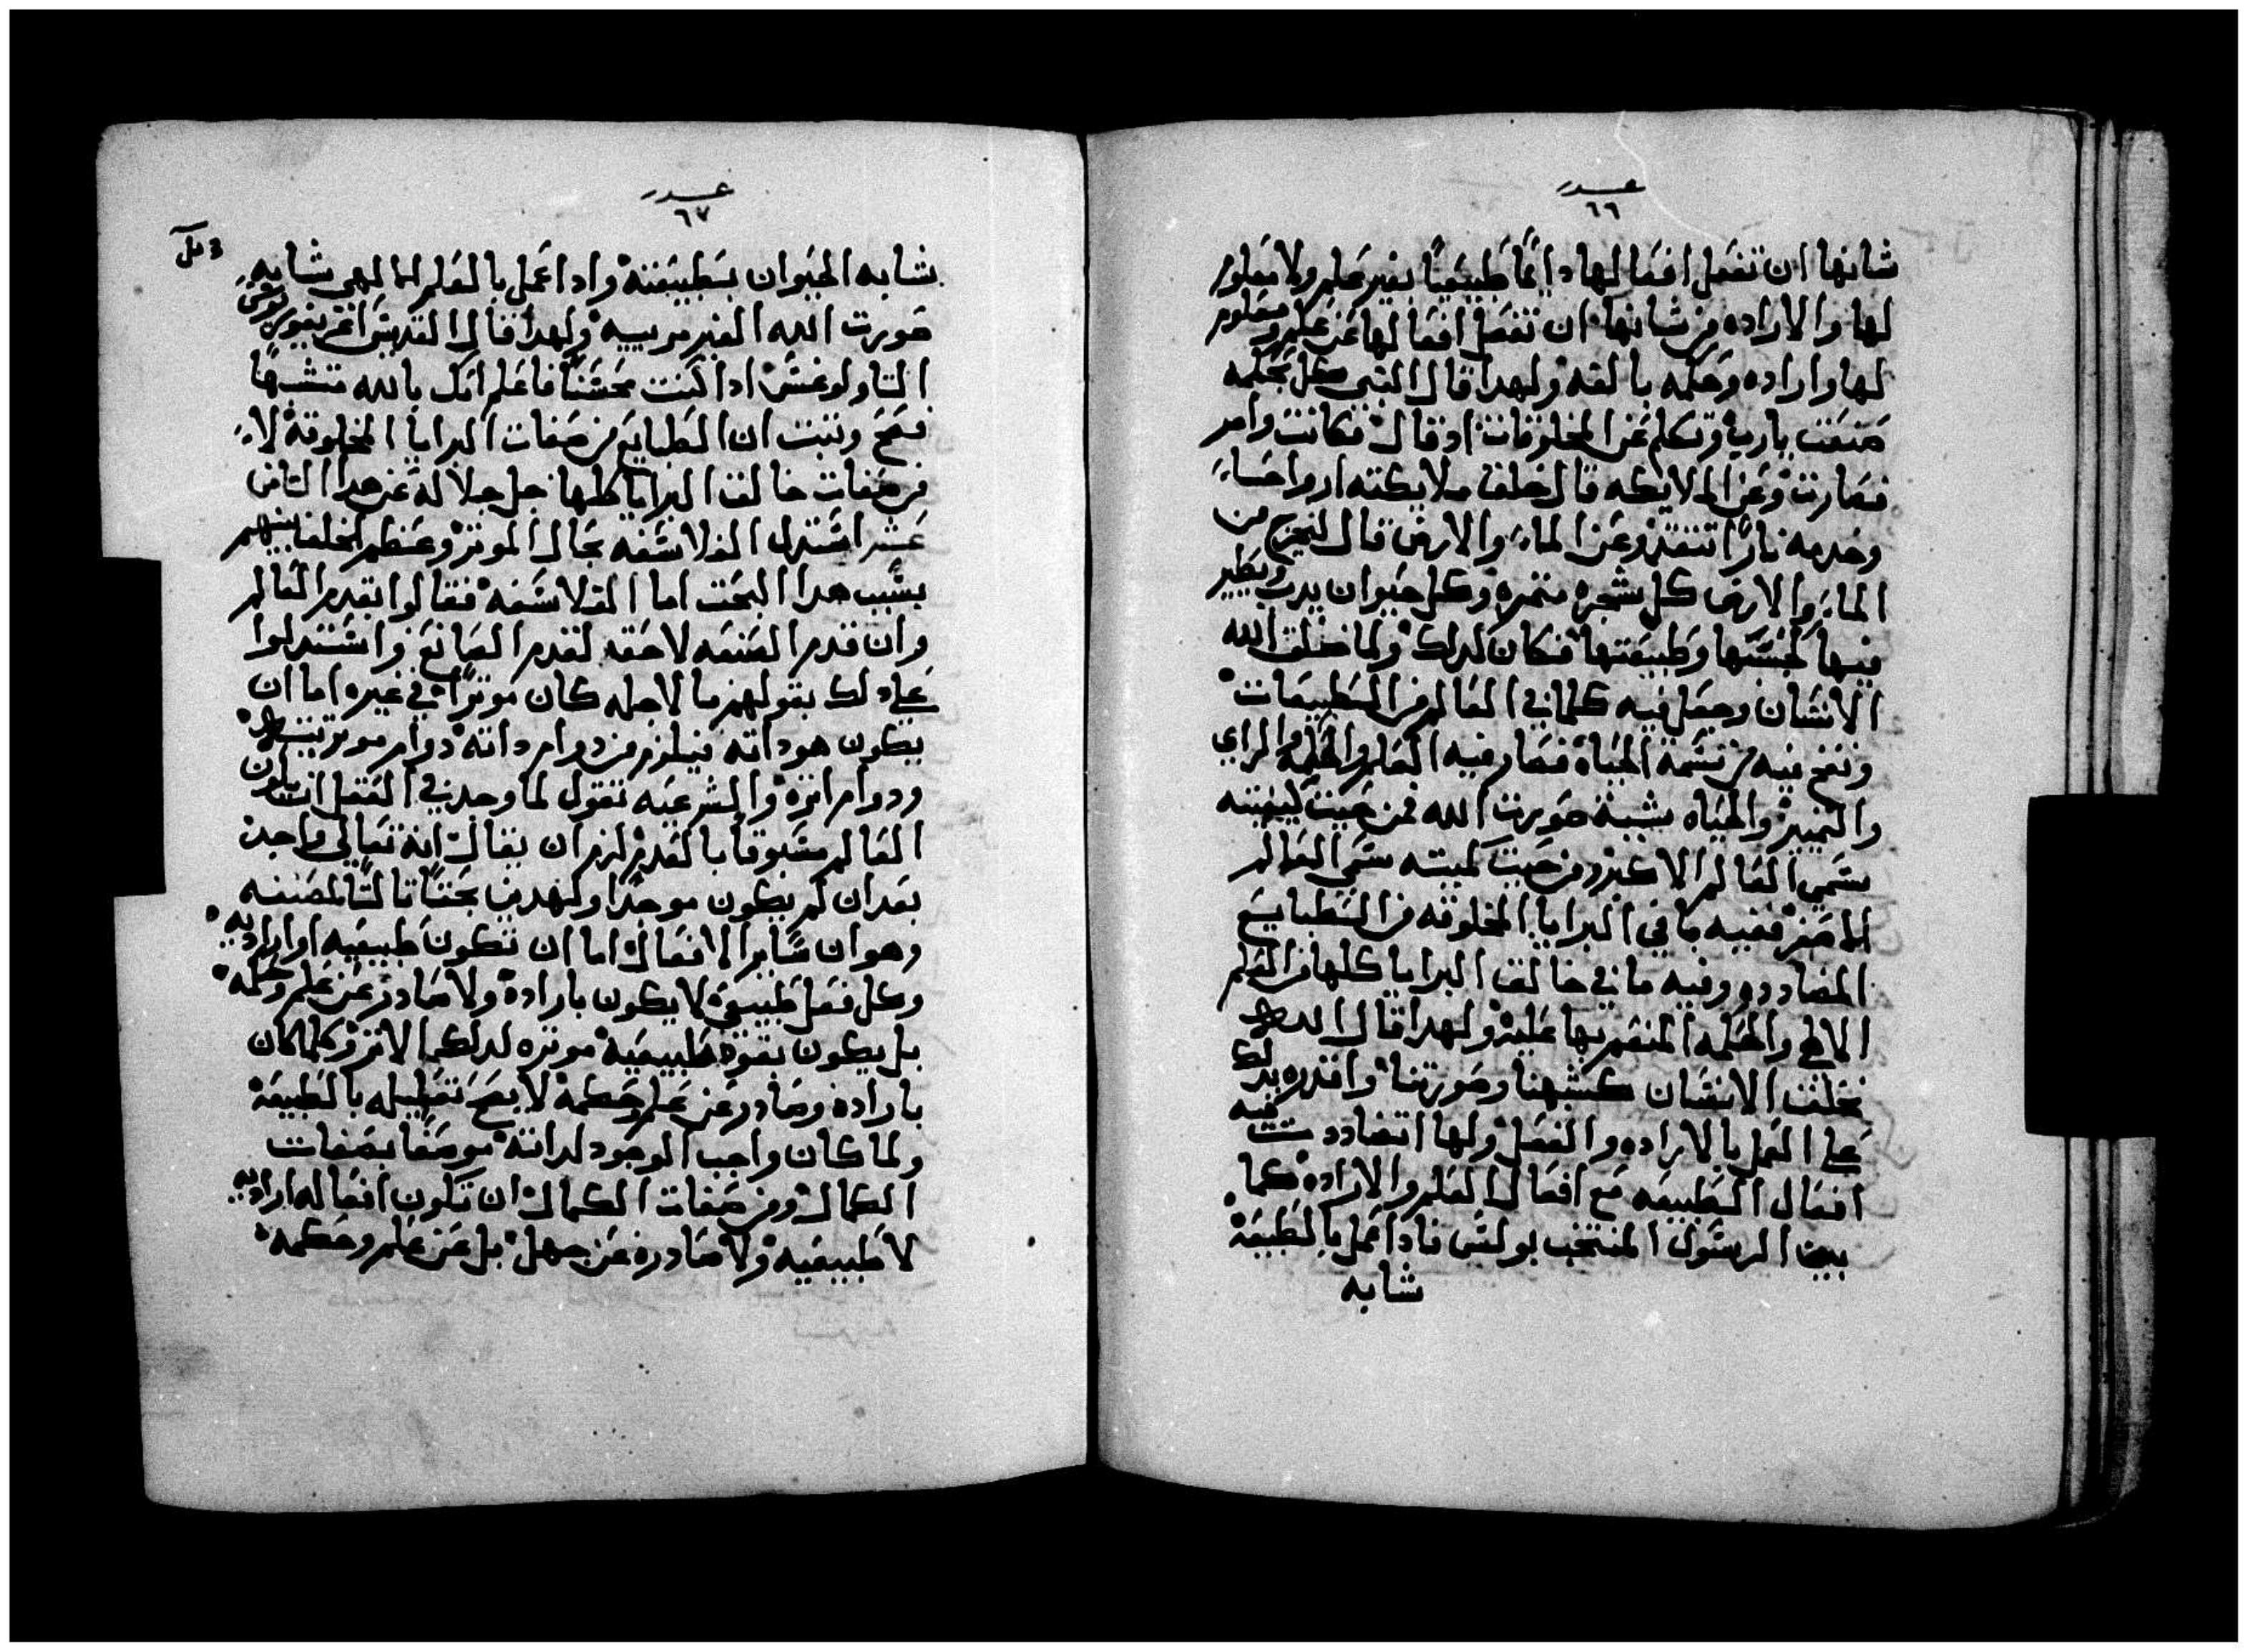 عدد
٦٦
شانها ان تفعل افعالها دايمًا طبيعيًا بغير علم ولا معلوم
لها والاراده من شانها ان تفعل افعالها عن علم ومعلوم
لها واراده وحكمه بالغه ولهدا قال النبى كل بحكمه
صنعت يارب وتكلم عن المخلوقات اد قال فكانت وامر
فصارت وعن الملايكه قال خلق ملايكته ارواحًا
وخدمه نارًا تتقد وعن الماء والارض قال لتخرج من
الماء والارض كل شجره متمره وكل حيوان يدب ويطير
فيها لجنسها وطبيعتها فكان كدلك ولما خلق الله
الانسان وجعل فيه كلما في العالم من الطبيعات
ونفخ فيه من نسمة الحياة فصار فيه العلم والحكمه والراي
والتميز والحياه شبه صورت الله فمن حيت كيفيته
سمي العالم الاكبر ومن حيت كميته سمى العالم
الاصغر ففيه ما في البرايا المخلوقه من الطبايع
المضادده وفيه ما في خالق البرايا كلها من العلم
الالهي والحكمه المنعم بها عليه ولهدا قال الله
نخلق الانسان كشبهنا وصورتنا واقدره بدلك
على العمل بالاراده والفعل ولهدا تضاددت فيه
افعال الطبيعه مع افعال العلم والاراده كما
بين الرسول المنتخب بولس فادا عمل بالطبيعة
شابه
عدد
٦٧
شابه الحيوان بطبيعته وادا عمل بالعلم الالهى شابه
صورت الله الغير مرييه ولهدا قال القديس اغريغوريوس
التاولوغس ادا كنت محسنًا فاعلم انك بالله متشبهًا
فصح وتبت ان الطبايع من صفات البرايا المخلوقة لا
من صفات خالق البرايا كلها جل جلاله عن هدا التانى
عشر استدل الفلاسفه بحال الموتر وعظم الخلف بينهم
بسبب هدا البحت اما الفلاسفه فقالوا بقدم العالم
وان قدم الصنعه لاحقه لقدم الصانع واستدلوا
على دلك بقولهم ما لاجله كان موترًا في غيره اما ان
يكون هو داته فيلزم من دوام داته دوام موتريته
ودوام اتره والشرعيه تقول لما وجد في العقل ان يكون
العالم مسبوقا بالقدم لزم ان يقال انه تعالى واجد
بعد ان لم يكون موجدًا ولنهدف بحتًا تالتًا لمصنفه
وهو ان ساير الافعال اما ان تكون طبيعيه او اراديه
وكل فعل طبيعى لا يكون باراده ولا صادر عن علم وحكمه
بل يكون بقوة طبيعيه موتره لدلك الاتر وكلما كان
باراده وصادر عن علم وحكمه لا يصح تعليله بالطبيعة
ولما كان واجب الوجود لداته موصفًا بصفات
الكمال ومن صفات الكمال ان تكون افعاله اراديه
لا طبيعيه ولا صادره عن جهل بل عن علم وحكمه